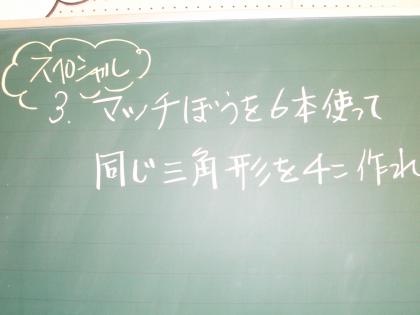 スペシャル
3. マッチぼうを6本使って
同じ三角形を4こ作れ